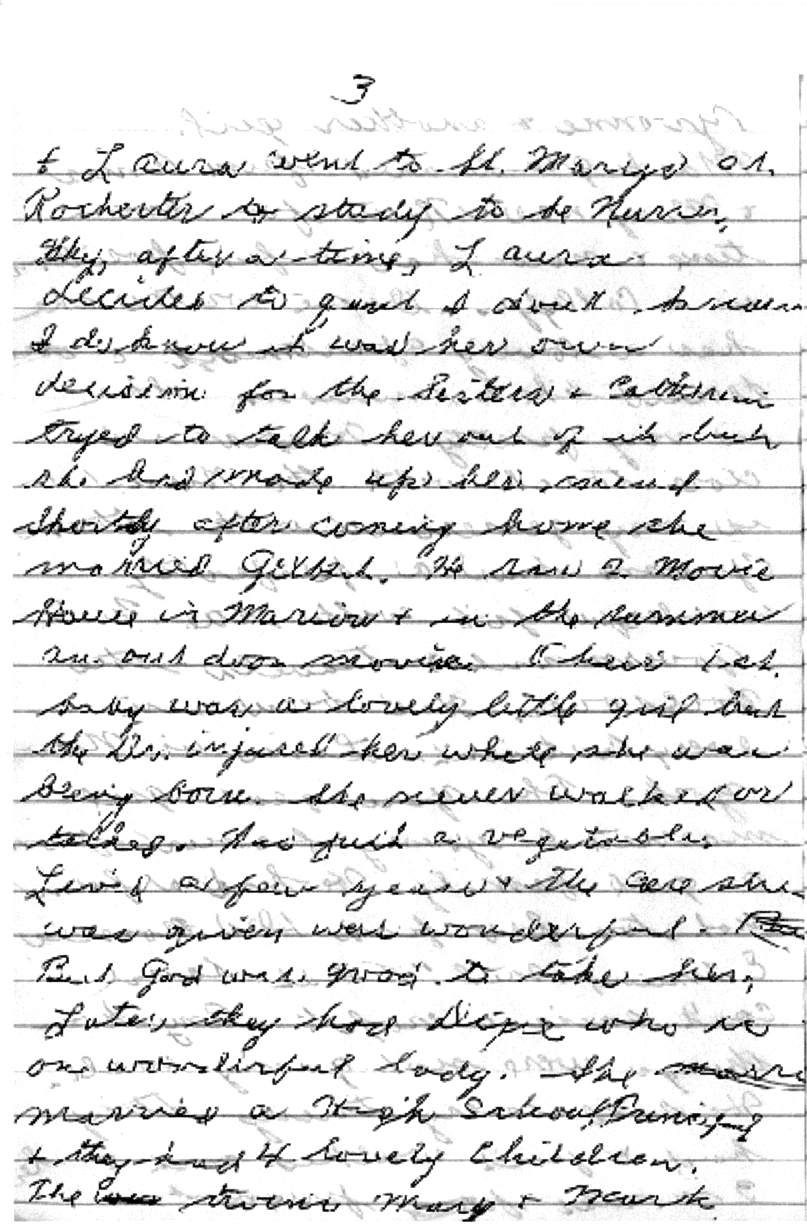 3
+ Laura went to St. Marys at
Rochester to study to be Nurses.
Why, after a time, Laura
decided to quit I don't know
I do know it was her own
decision for the Sisters + Catherine
tryed to talk her out of it but
she had made up her mind
Shortly after coming home she
married Gilbert. He ran a Movie
House in Marion + in the summer
an out door movie. Their 1st.
baby was a lovely little girl but
the Dr. injured her while she was
being born. She never walked or
talked. Was just a vegetable.
Lived a few years + the care she
was given was wonderful.
But God was good to take her.
Later, they had who is
one wonderful lady. She marri
married a High School Principal
+ they had 4 lovely Children.
The twins Mary + Mark